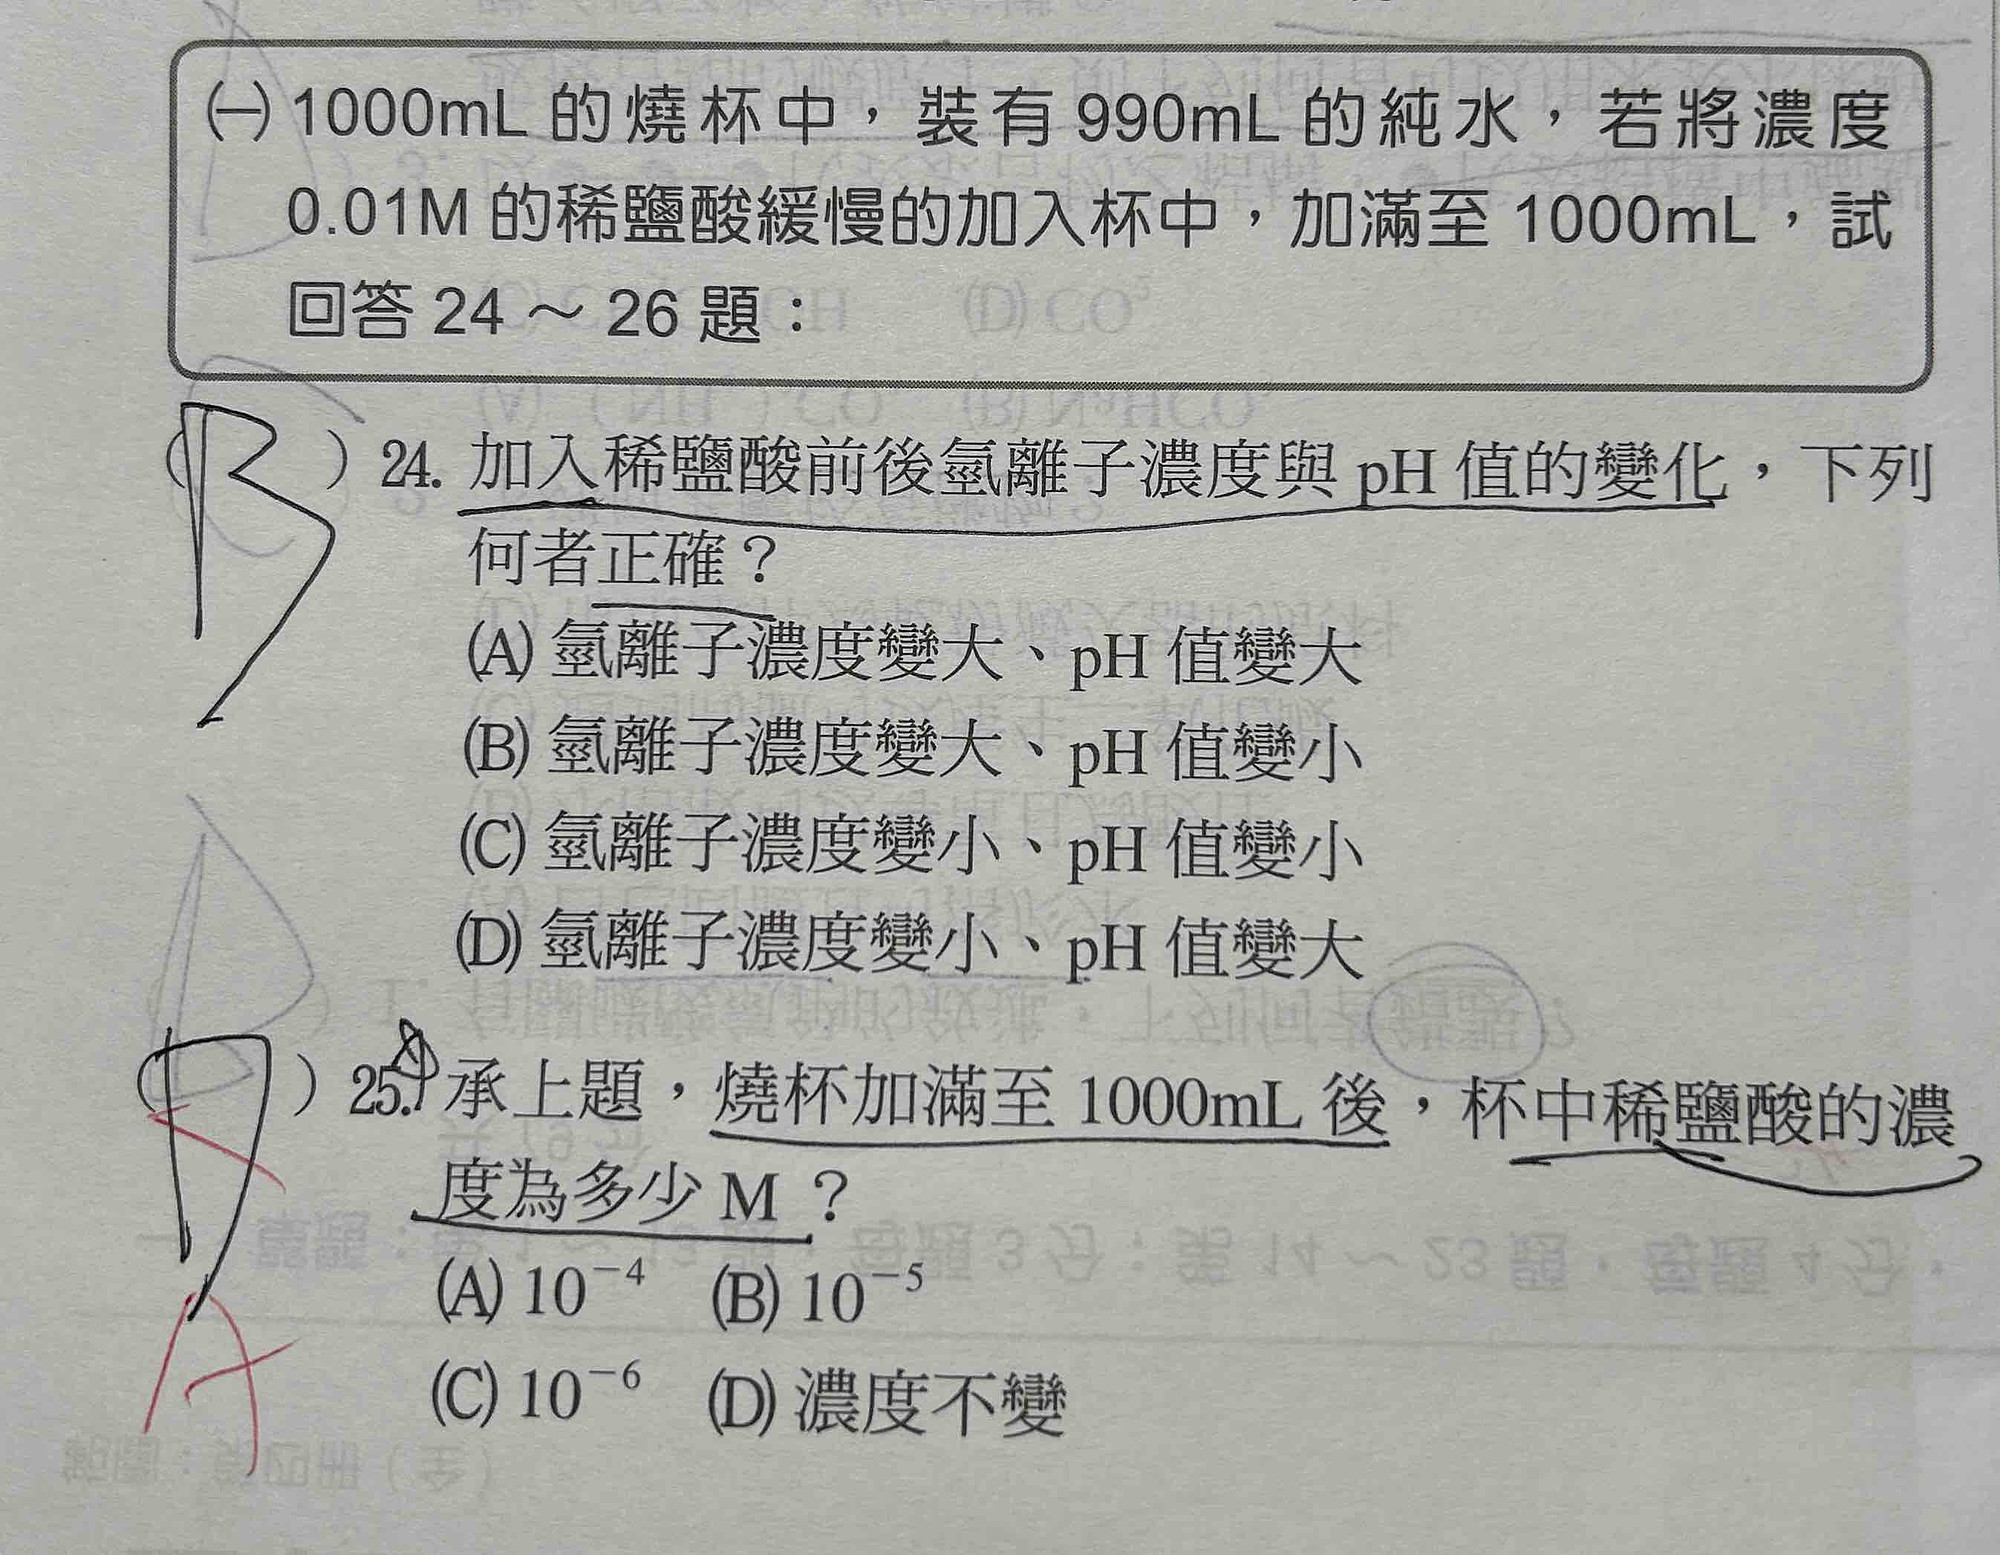 ㈠ 1000mL 的燒杯中，裝有 990mL 的純水，若將濃度
0.01M 的稀鹽酸緩慢的加入杯中，加滿至 1000mL，試
回答 24 ～ 26 題：
（B）24. 加入稀鹽酸前後氫離子濃度與 pH 值的變化，下列
何者正確？
(A) 氫離子濃度變大、pH 值變大
(B) 氫離子濃度變大、pH 值變小
(C) 氫離子濃度變小、pH 值變小
(D) 氫離子濃度變小、pH 值變大
（D）25. 承上題，燒杯加滿至 1000mL 後，杯中稀鹽酸的濃
度為多少 M ？
(A) 10⁻⁴ (B) 10⁻⁵
A
(C) 10⁻⁶ (D) 濃度不變